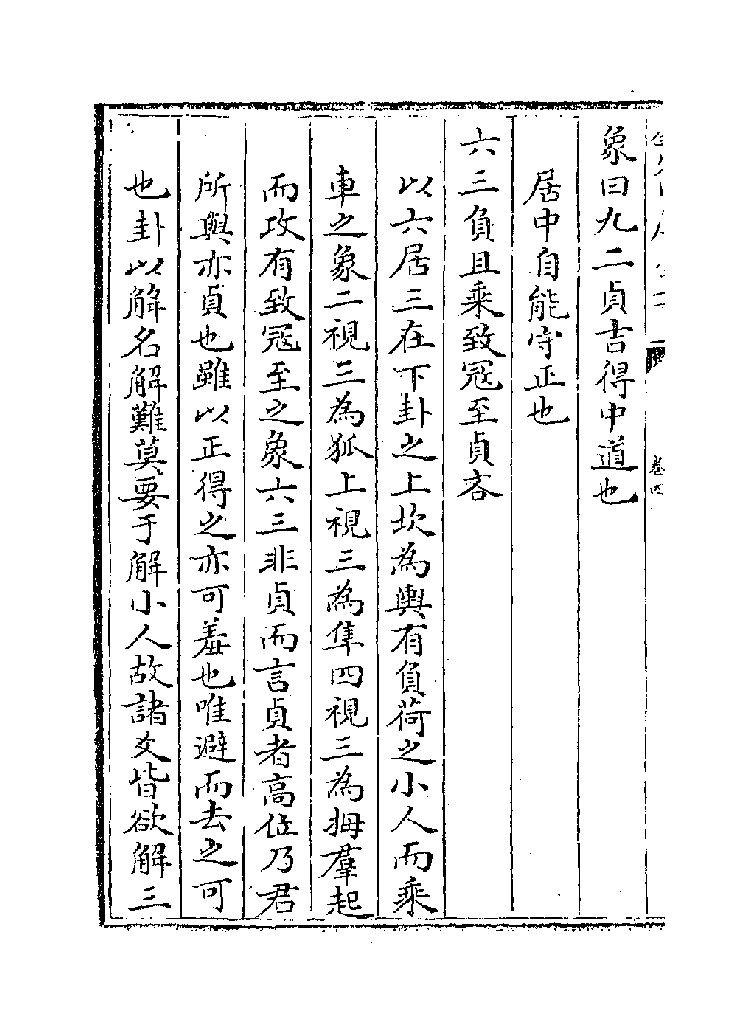 象曰九二貞吉得中道也
居中自能守正也
六三負且乘致冦至貞吝
以六居三在下卦之上坎為輿有負荷之小人而乘
車之象二視三為狐上視三為隼四視三為拇羣起
而攻有致冦至之象六三非貞而言貞者高位乃君
所與亦貞也雖以正得之亦可羞也唯避而去之可
也卦以解名解難莫要于解小人故諸爻皆欲解三
卷四